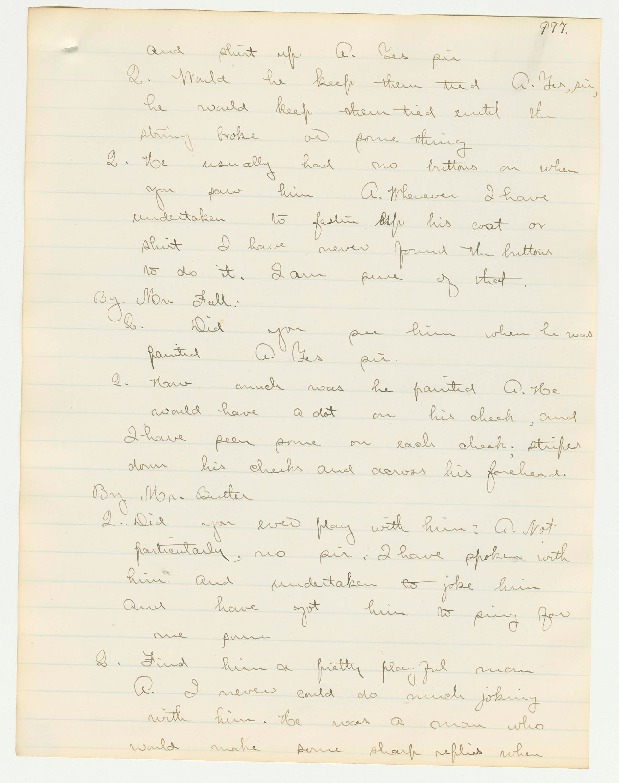 997.
and shirt up A. Yes sir
Q. Would he keep them tied A. Yes, sir,
he would keep them tied until the
string broke or some thing
Q. He usually had no buttons on when
you saw him A. Whenever I have
undertaken to fasten up his coat or
shirt I have never found the buttons
to do it. I am sure of that.
By Mr. Fall:
Q. Did you see him when he was
painted A. Yes sir.
Q. How much was he painted A. He
would have a dot on his cheek, and
I have seen some on each cheek; stripes
down his cheeks and across his forehead.
By Mr. Butler
Q. Did you ever play with him? A. Not
particularly, no sir. I have spoken with
him and undertaken to joke him
and have got him to sing for
me some
Q. Find him a pretty playful man
A. I never could do much joking
with him. He was a man who
would make some sharp replies when